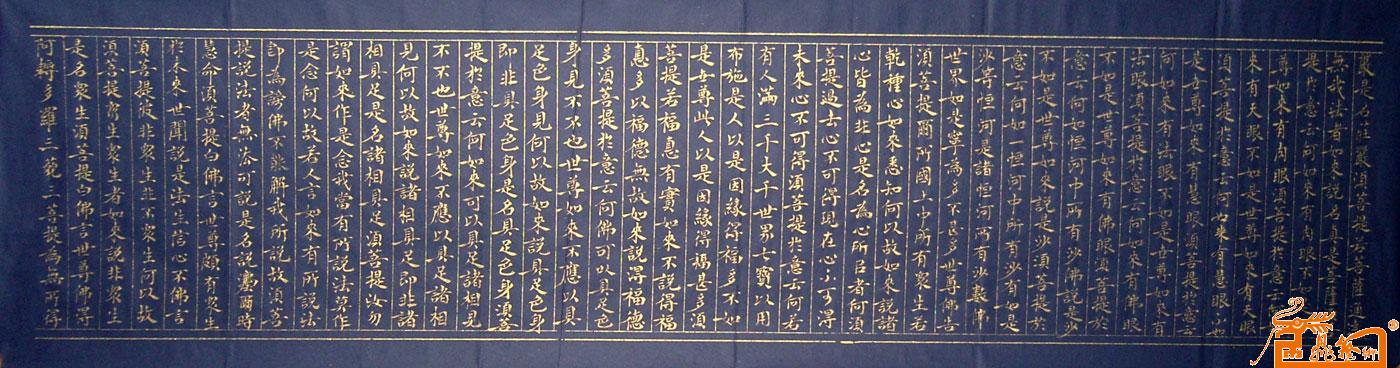 嚴是名莊嚴須菩提若菩薩通達
無我法者如來說名真是菩薩
是於意云何如來有肉眼不如
尊如來有肉眼須菩提於意云
來有天眼不如是世尊如來有天眼
須菩提於意云何如來有慧眼不如
是世尊如來有慧眼須菩提於意云
何如來有法眼不如是世尊如來有
法眼須菩提於意云何如來有佛眼
不如是世尊如來有佛眼須菩提於
意云何如恒河中所有沙佛說是沙
不如是世尊如來說是沙須菩提於
意云何如一恒河中所有沙有如是
沙等恒河是諸恒河所有沙數佛
世界如是寧為多不甚多世尊佛告
須菩提爾所國土中所有眾生若
乾種心如來悉知何以故如來說諸
心皆為非心是名為心所以者何須
菩提過去心不可得現在心不可得
未來心不可得須菩提於意云何若
有人滿三千大千世界七寶以用
布施是人以是因緣得福多不如
是世尊此人以是因緣得福甚多須
菩提若福德有實如來不說得福
德多以福德無故如來說得福德
多須菩提於意云何佛可以具足色
身見不不也世尊如來不應以具
足色身見何以故如來說具足色身
即非具足色身是名具足色身須菩
提於意云何如來可以具足諸相見
不不也世尊如來不應以具足諸相
見何以故如來說諸相具足即非諸
相具足是名諸相具足須菩提汝勿
謂如來作是念我當有所說法莫作
是念何以故若人言如來有所說法
即為謗佛不能解我所說故須菩
提說法者無法可說是名說法爾時
慧命須菩提白佛言世尊頗有眾生
於未來世聞說是法生信心不佛言
須菩提彼非眾生非不眾生何以故
須菩提眾生眾生者如來說非眾生
是名眾生須菩提白佛言世尊佛得
阿耨多羅三藐三菩提為無所得